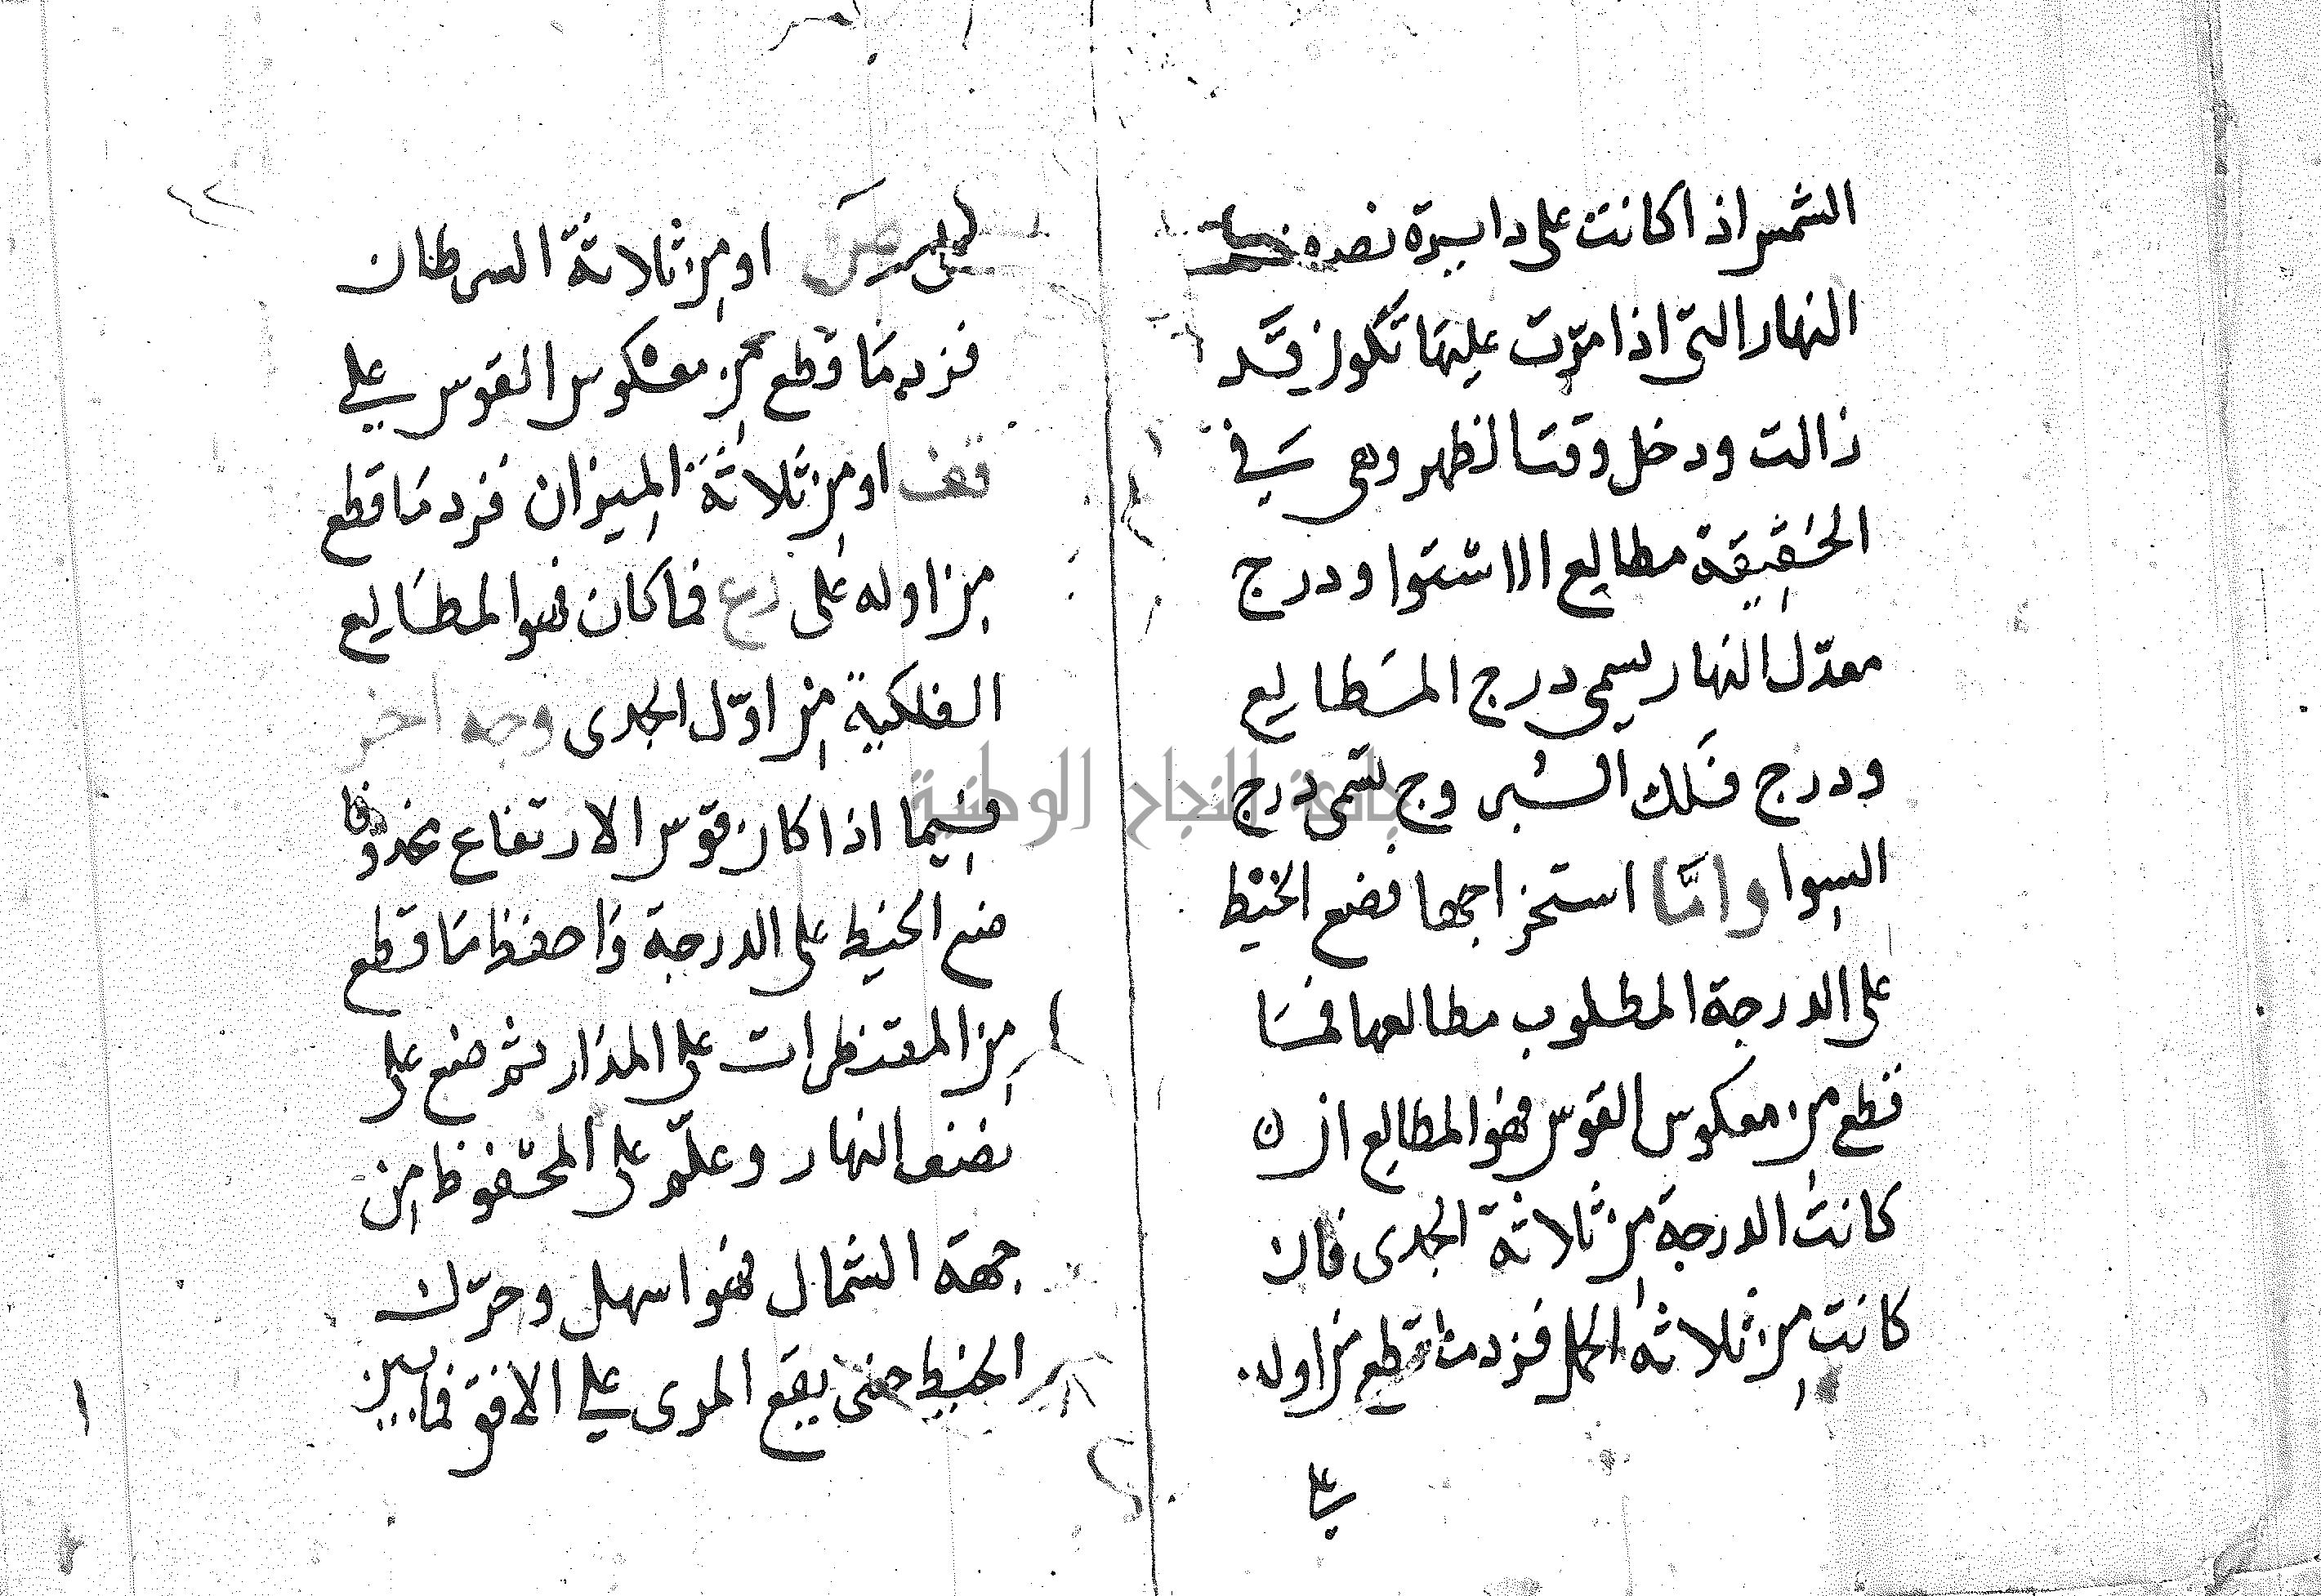 الشمس اذا كانت على دايرة نصف
النهار التى اذا مرّت عليها تكون قد
زالت ودخل وقت الظهر وهى في
الحقيقة مطالع الاستوا ودرج
معدّل النهار يسمى درج المطالع
ودرج فلك البروج تسمى درج
السوا وامّا استخراجها فضع الخيط
على الدرجة المطلوب مطالعها فما
قطع من معكوس القوس فهو المطالع ان
كانت الدرجة من ثلاثة الجدى فان
كانت من ثلاثة الحمل فزد ما قطع من اوله
على
٤٢
على او من ثلاثة السرطان
فزد ما قطع من معكوس القوس على
قف او من ثلاثة الميزان فزد ما قطع
من اوله على رع فما كان فهو المطالع
الفلكية من اوّل الجدى وجه اخر
فيما اذا كان قوس الارتفاع محذوفا
ضع الخيط على الدرجة واحفظ ما قطع
من المقنطرات على المدار ثم ضع على
نصف النهار وعلّم على المحفوظ من
جهة الشمال فهو اسهل وحرّك
الخيط حتى يقع المرى على الافق فما بين
جامعة النجاح الوطنية